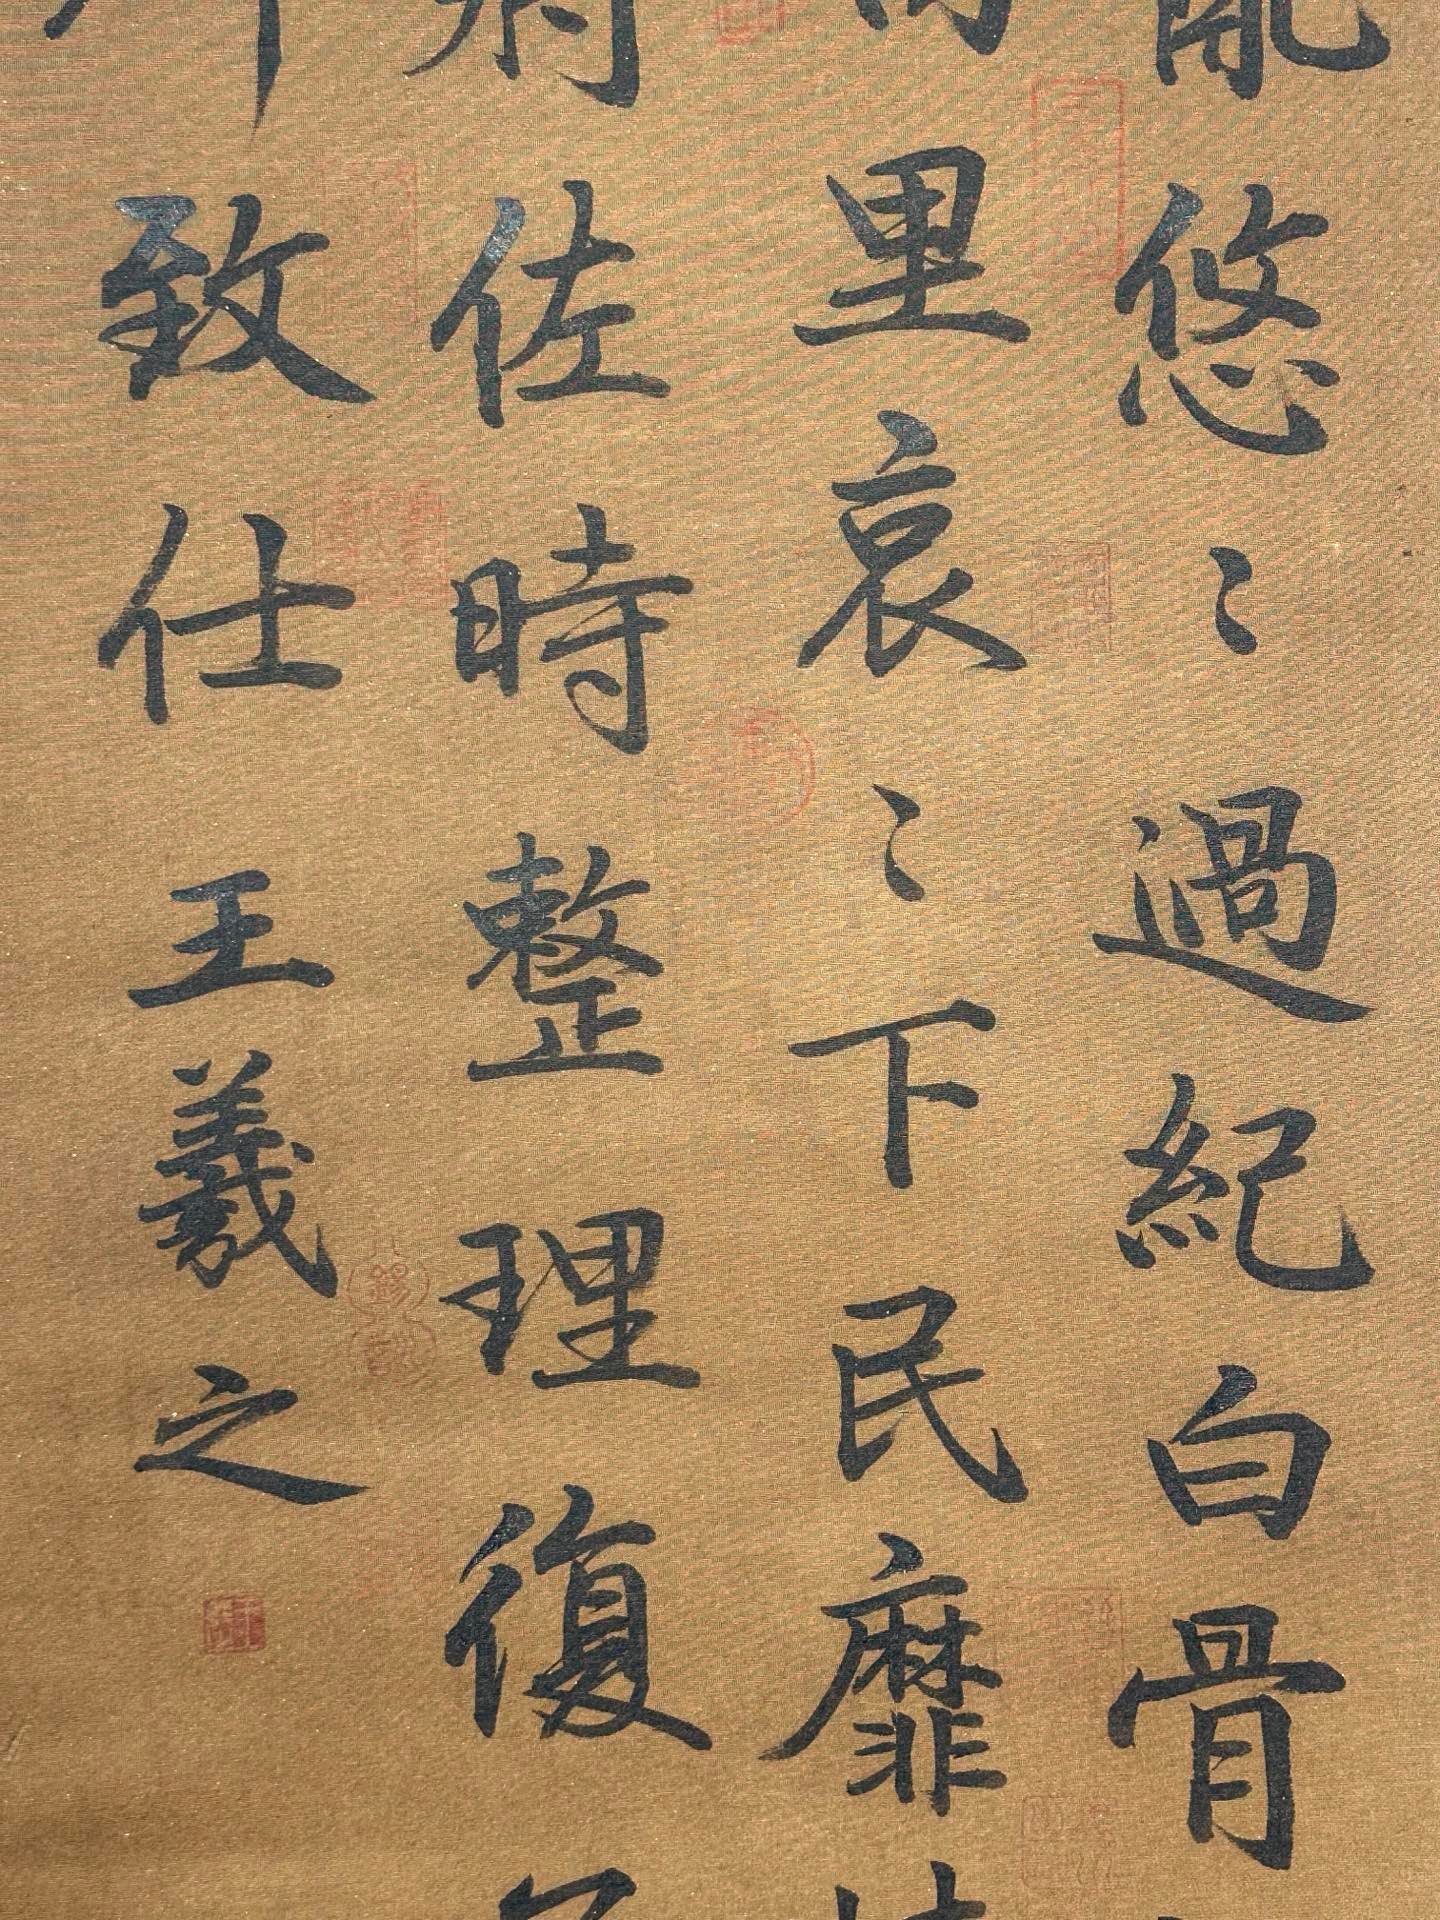 亂悠〻過紀白骨
里哀〻下民靡
佐時整理復
致仕王羲之